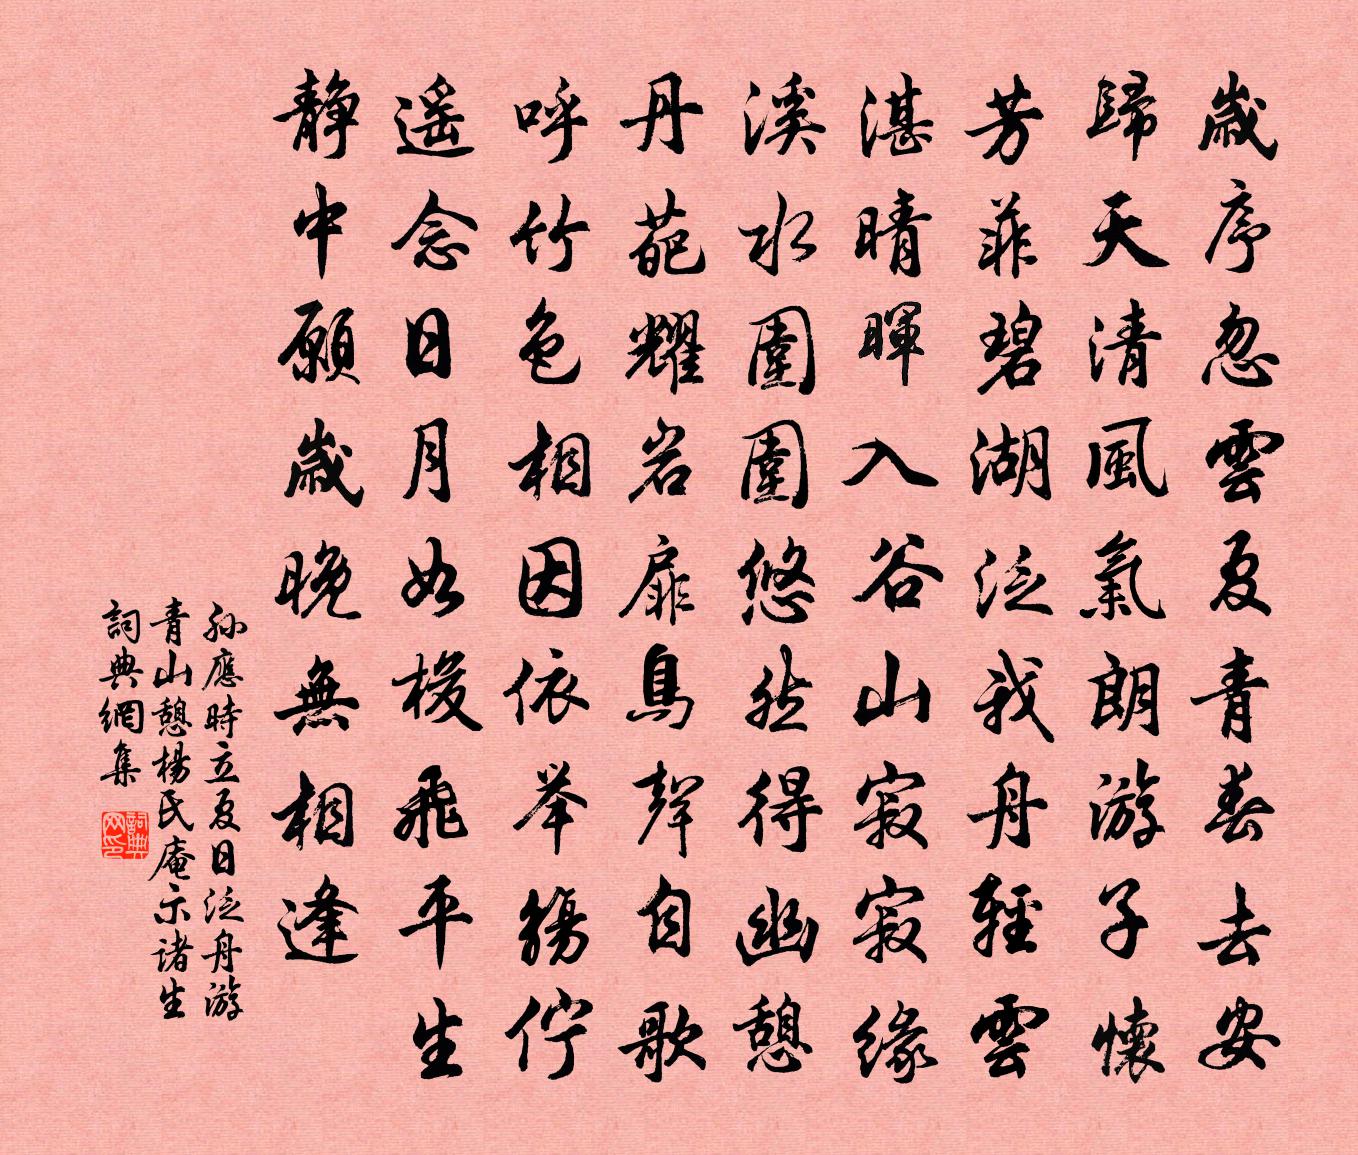 歲序忽雲夏青春去安
歸天清風氣朗游子懷
芳菲碧湖泛我舟輕雲
湛晴暉入谷山寂寂緣
溪水圍圍悠然得幽憩
丹葩耀岩扉鳥聲自歌
呼竹色相因依举觴佇
遥念日月如梭飛平生
静中願歲晚無相逢
孙應時立夏日泛舟游
青山憩楊氏庵示诸生
詞典網集
詞典网印